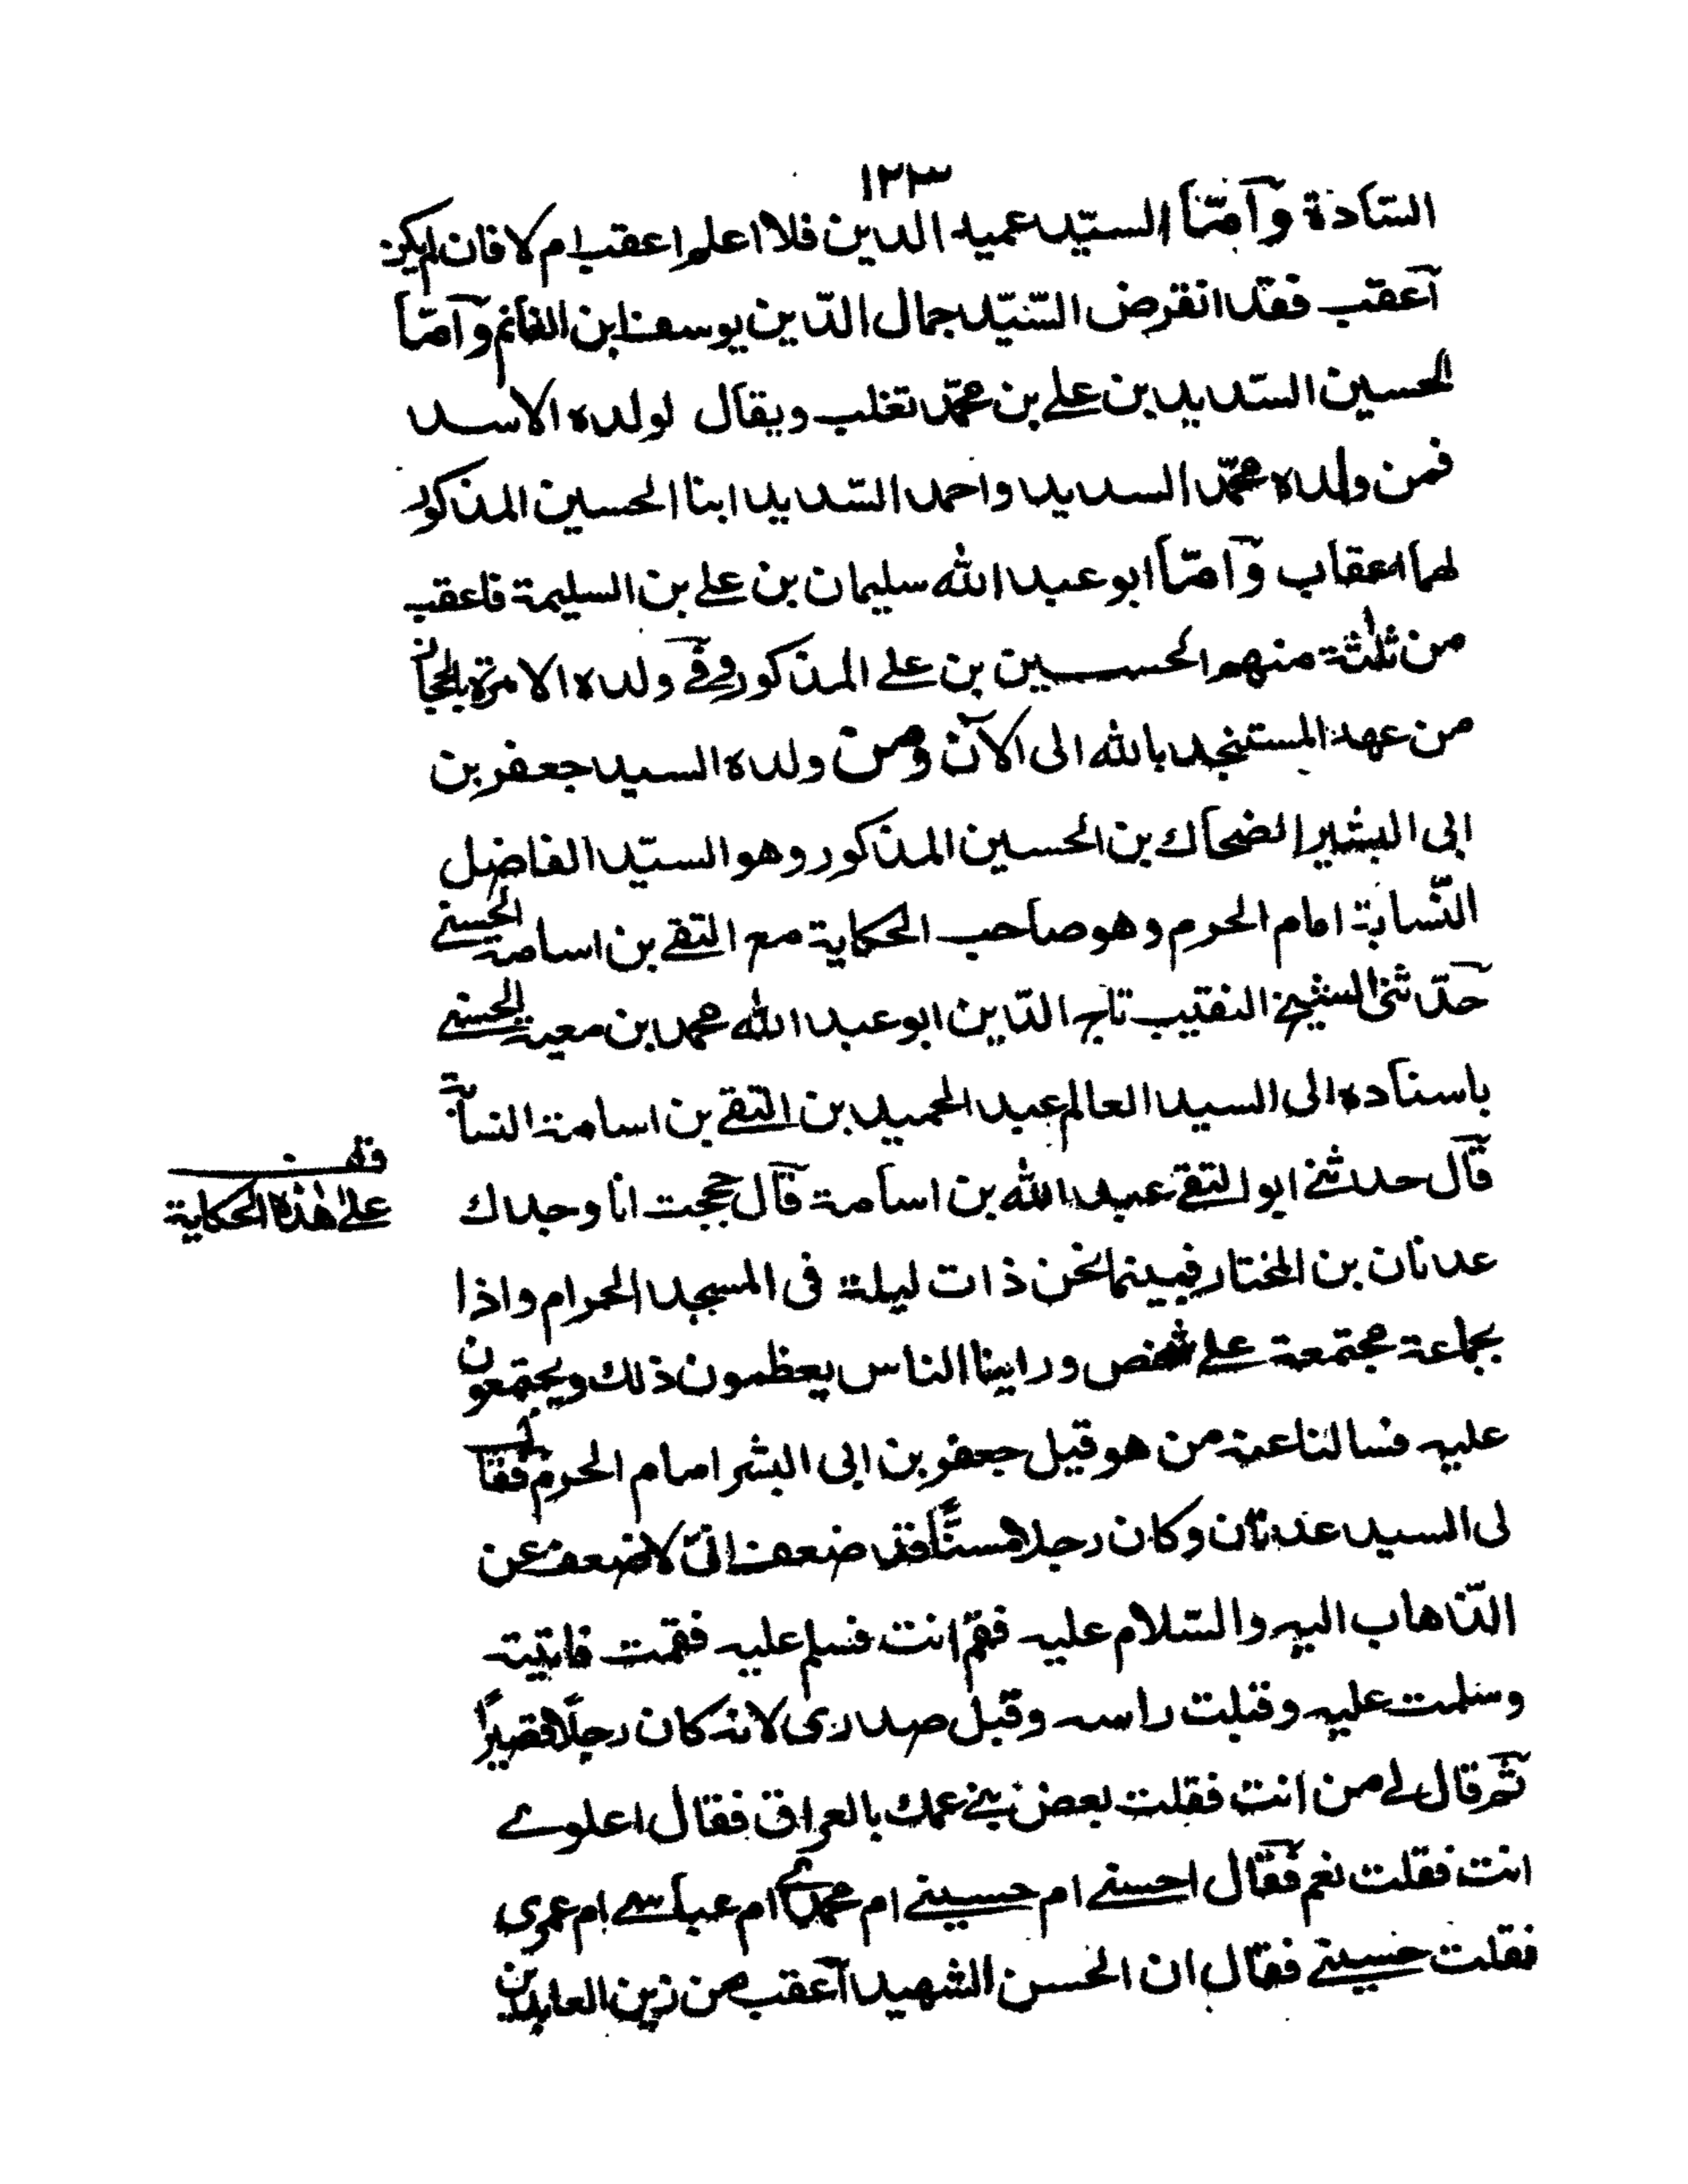 ١٢٣
السّادة وآمّا السيّد عميد الدين فلا اعلم اعقب ام لا فان لم يكن
آعقب فقد انقرض السّيّد جمال الدّين يوسف ابن الغانم وآمّا
الحسين السّديد بن على بن محمّد تغلب ويقال لولده الاسد
فمن ولده محمّد السديد واحمد السّديد ابنا الحسين المذكور
لهما اعقاب وآمّا ابو عبد الله سليمان بن على بن السليمة فاعقب
من ثلثة منهم الحسين بن على المذكور وفى ولده الامرة بالحجاز
من عهد المستنجد بالله الى الآن ومن ولده السيد جعفر بن
ابى البشير الضحاك بن الحسين المذكور وهو السيّد الفاضل
النّسابة امام الحرم وهو صاحب الحكاية مع التقى بن اسامة الحسينى
حدّثنى الشيخ النقيب تاج الدّين ابو عبد الله محمد بن معية الحسنى
باسناده الى السيد العالم عبد الحميد بن التقى بن اسامة النسابة
قال حدثنى ابو التقى عبد الله بن اسامة قال حججت انا وجدك
عدنان بن المختار فبينما نحن ذات ليلة فى المسجد الحرام واذا
بجماعة مجتمعة على شخص وراينا الناس يعظمون ذلك ويجتمعون
عليه فسالنا عنه من هو قيل جعفر بن ابى البشر امام الحرم فقال
لى السيد عدنان وكان رجلا مسنًّا فقد ضعف انّى لاضعف عن
الذّهاب اليه والسّلام عليه فقم انت فسلم عليه فقمت فاتيته
وسلمت عليه وقبلت راسه وقبل صدرى لانه كان رجلًا قصيرًا
ثم قال لى من انت فقلت بعض بنى عمك بالعراق فقال اعلوى
انت فقلت نعم فقال احسنى ام حسينى ام محمدى ام عباسى ام عمرى
فقلت حسينى فقال ان الحسن الشهيد آعقب من زين العابدين
قف
على هذه الحكاية